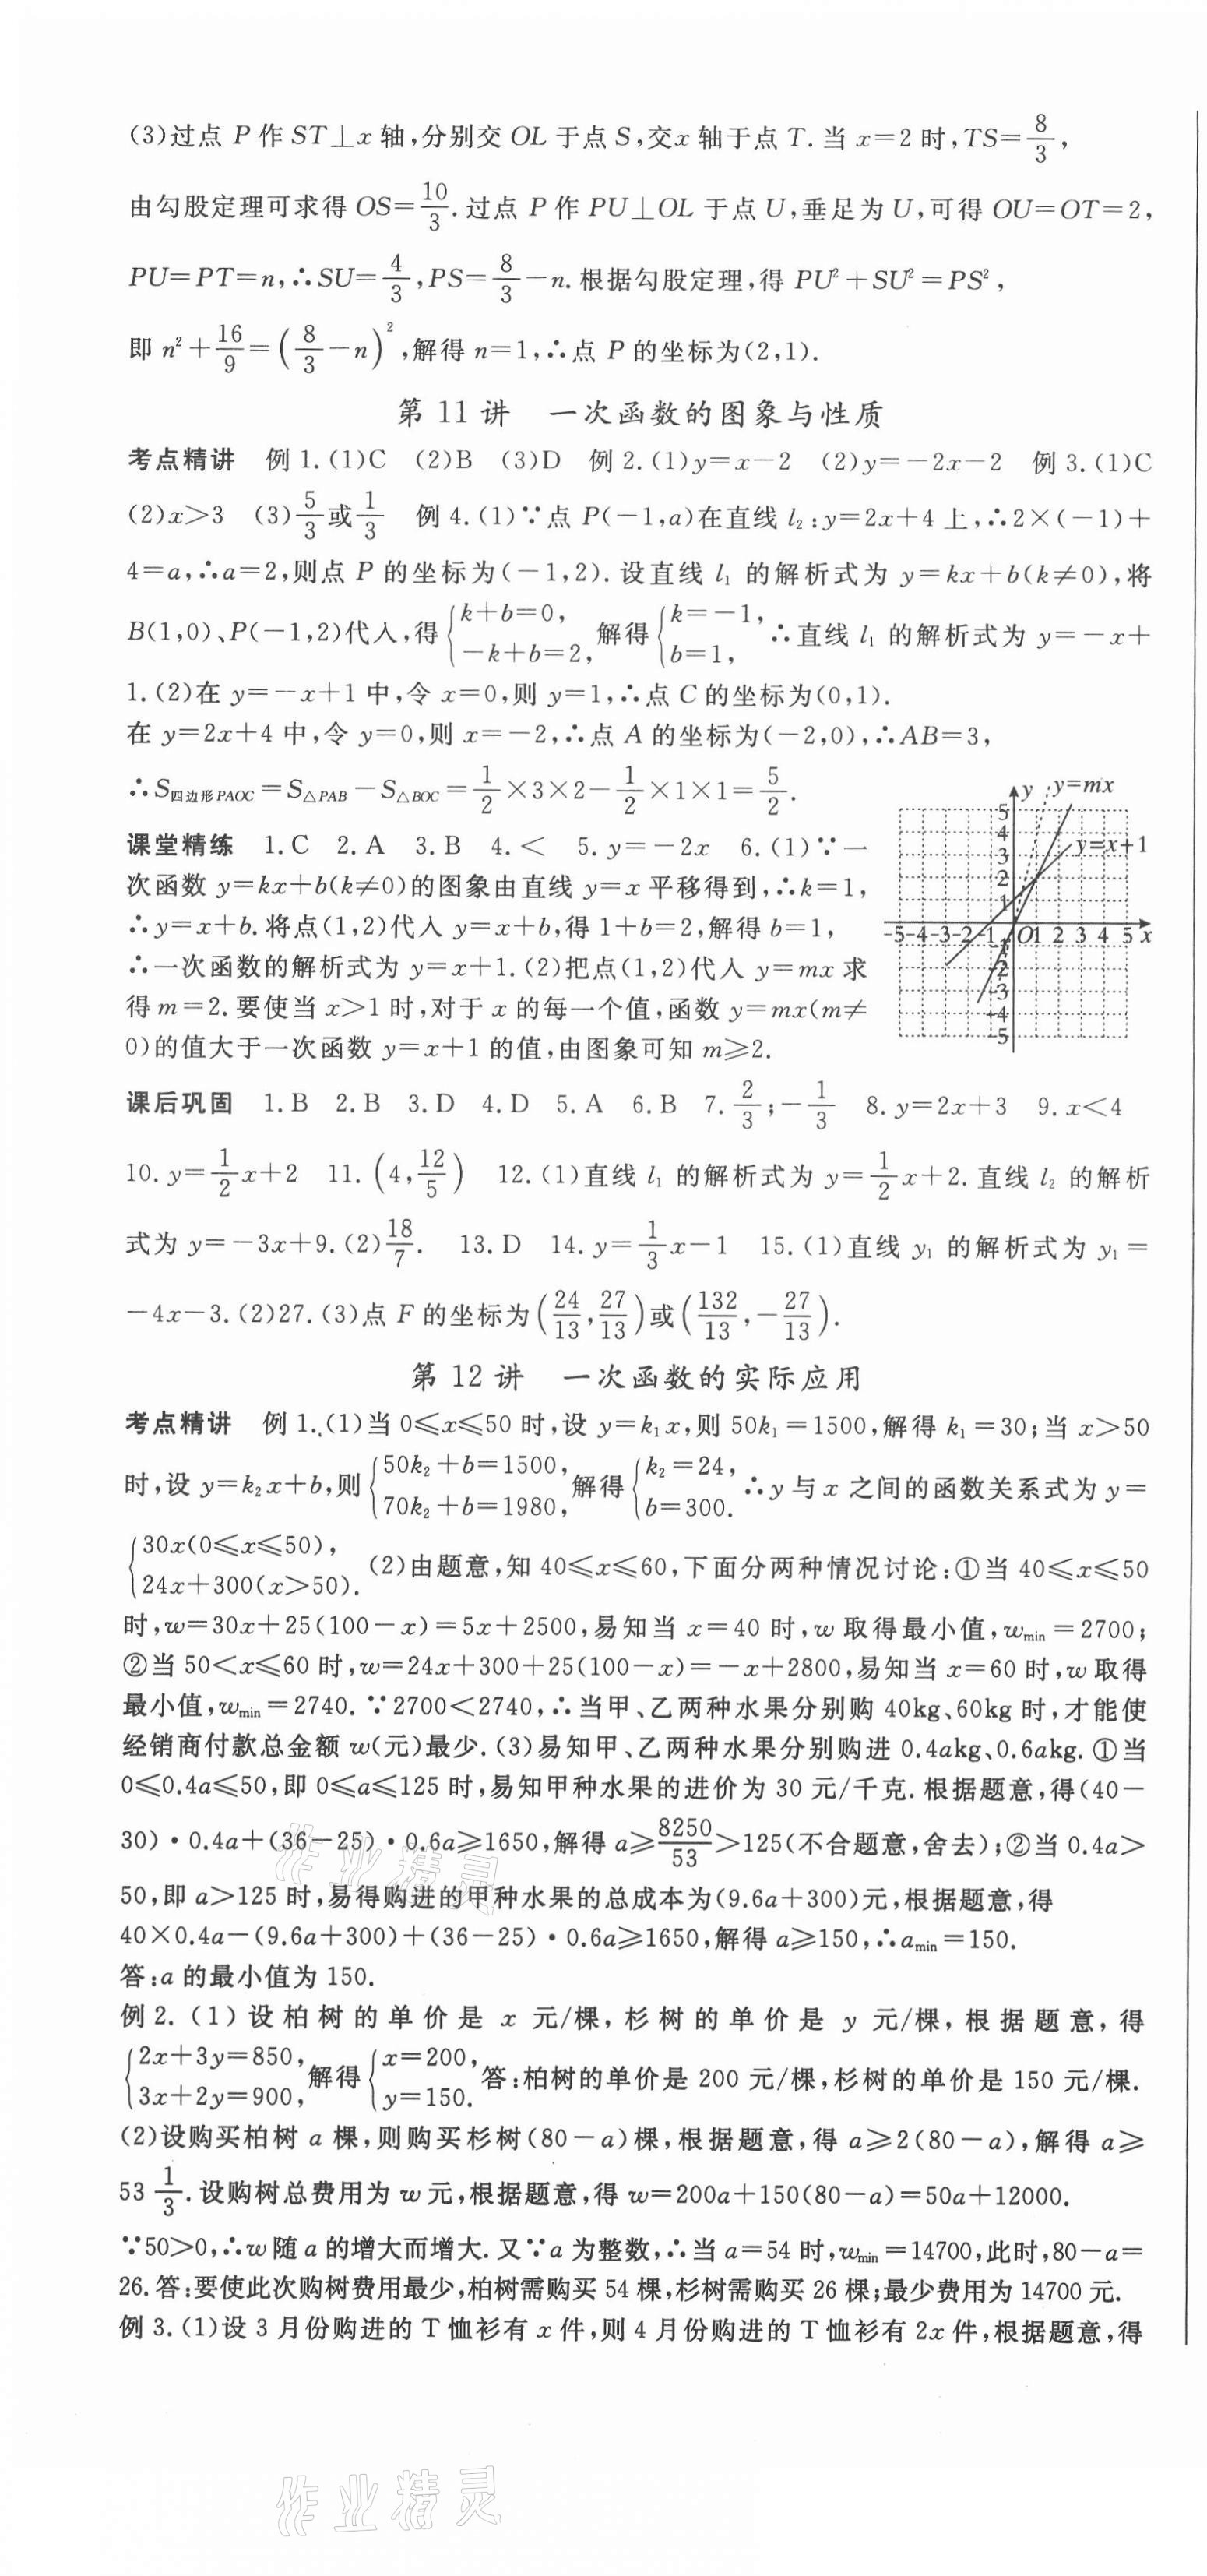 (3)过点 P 作 ST⊥x 轴,分别交 OL 于点 S,交x 轴于点 T. 当 x=2 时,TS=8/3,
由勾股定理可求得 OS=10/3. 过点 P 作 PU⊥OL 于点 U,垂足为 U,可得 OU=OT=2,
PU=PT=n,∴SU=4/3,PS=8/3-n. 根据勾股定理,得 PU²+SU²=PS²,
即 n²+16/9=(8/3-n)²,解得 n=1,∴点 P 的坐标为(2,1).
第 11 讲 一次函数的图象与性质
考点精讲 例 1. (1)C (2)B (3)D 例 2. (1)y=x-2 (2)y=-2x-2 例 3. (1)C
(2)x>3 (3)5/3或1/3 例 4. (1)∵点 P(-1,a)在直线 l₂:y=2x+4 上,∴2×(-1)+
4=a,∴a=2,则点 P 的坐标为(-1,2). 设直线 l₁ 的解析式为 y=kx+b(k≠0),将
B(1,0)、P(-1,2)代入,得{k+b=0, -k+b=2, 解得{k=-1, b=1, ∴直线 l₁ 的解析式为 y=-x+
1. (2)在 y=-x+1 中,令 x=0,则 y=1,∴点 C 的坐标为(0,1).
在 y=2x+4 中,令 y=0,则 x=-2,∴点 A 的坐标为(-2,0),∴AB=3,
∴S四边形PAOC=S△PAB-S△BOC=1/2×3×2-1/2×1×1=5/2.
课堂精练 1. C 2. A 3. B 4. < 5. y=-2x 6. (1)∵一
次函数 y=kx+b(k≠0)的图象由直线 y=x 平移得到,∴k=1,
∴y=x+b. 将点(1,2)代入 y=x+b,得 1+b=2,解得 b=1,
∴一次函数的解析式为 y=x+1. (2)把点(1,2)代入 y=mx 求
得 m=2. 要使当 x>1 时,对于 x 的每一个值,函数 y=mx(m≠
0)的值大于一次函数 y=x+1 的值,由图象可知 m≥2.
y y=mx
5
4
3 y=x+1
2
1
-5-4-3-2-1 O1 2 3 4 5 x
-2
-3
-4
-5
课后巩固 1. B 2. B 3. D 4. D 5. A 6. B 7. 2/3;-1/3 8. y=2x+3 9. x<4
10. y=1/2x+2 11. (4,12/5) 12. (1)直线 l₁ 的解析式为 y=1/2x+2. 直线 l₂ 的解析
式为 y=-3x+9. (2)18/7. 13. D 14. y=1/3x-1 15. (1)直线 y₁ 的解析式为 y₁=
-4x-3. (2)27. (3)点 F 的坐标为(24/13,27/13)或(132/13,-27/13).
第 12 讲 一次函数的实际应用
考点精讲 例 1. (1)当 0≤x≤50 时,设 y=k₁x,则 50k₁=1500,解得 k₁=30;当 x>50
时,设 y=k₂x+b,则{50k₂+b=1500, 70k₂+b=1980, 解得{k₂=24, b=300. ∴y 与 x 之间的函数关系式为 y=
{30x(0≤x≤50), 24x+300(x>50). (2)由题意,知 40≤x≤60,下面分两种情况讨论:①当 40≤x≤50
时,w=30x+25(100-x)=5x+2500,易知当 x=40 时,w 取得最小值,wmin=2700;
②当 50<x≤60 时,w=24x+300+25(100-x)=-x+2800,易知当 x=60 时,w 取得
最小值,wmin=2740. ∵2700<2740,∴当甲、乙两种水果分别购 40kg、60kg 时,才能使
经销商付款总金额 w(元)最少. (3)易知甲、乙两种水果分别购进 0.4akg、0.6akg. ①当
0≤0.4a≤50,即 0≤a≤125 时,易知甲种水果的进价为 30 元/千克. 根据题意,得(40-
30)·0.4a+(36-25)·0.6a≥1650,解得 a≥8250/53>125(不合题意,舍去);②当 0.4a>
50,即 a>125 时,易得购进的甲种水果的总成本为(9.6a+300)元,根据题意,得
40×0.4a-(9.6a+300)+(36-25)·0.6a≥1650,解得 a≥150,∴amin=150.
答:a 的最小值为 150.
例 2. (1)设柏树的单价是 x 元/棵,杉树的单价是 y 元/棵,根据题意,得
{2x+3y=850, 3x+2y=900, 解得{x=200, y=150. 答:柏树的单价是 200 元/棵,杉树的单价是 150 元/棵.
(2)设购买柏树 a 棵,则购买杉树(80-a)棵,根据题意,得 a≥2(80-a),解得 a≥
53 1/3. 设购树总费用为 w 元,根据题意,得 w=200a+150(80-a)=50a+12000.
∵50>0,∴w 随 a 的增大而增大. 又∵a 为整数,∴当 a=54 时,wmin=14700,此时,80-a=
26. 答:要使此次购树费用最少,柏树需购买 54 棵,杉树需购买 26 棵;最少费用为 14700 元.
例 3. (1)设 3 月份购进的 T 恤衫有 x 件,则 4 月份购进的 T 恤衫有 2x 件,根据题意,得
作业精灵
作业精灵